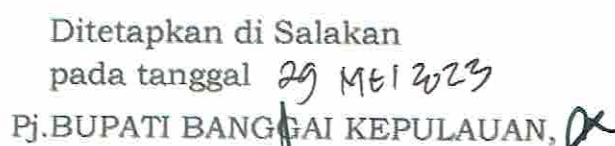 Ditetapkan di Salakan
pada tanggal 29 MEI 2023
Pj.BUPATI BANGGAI KEPULAUAN,